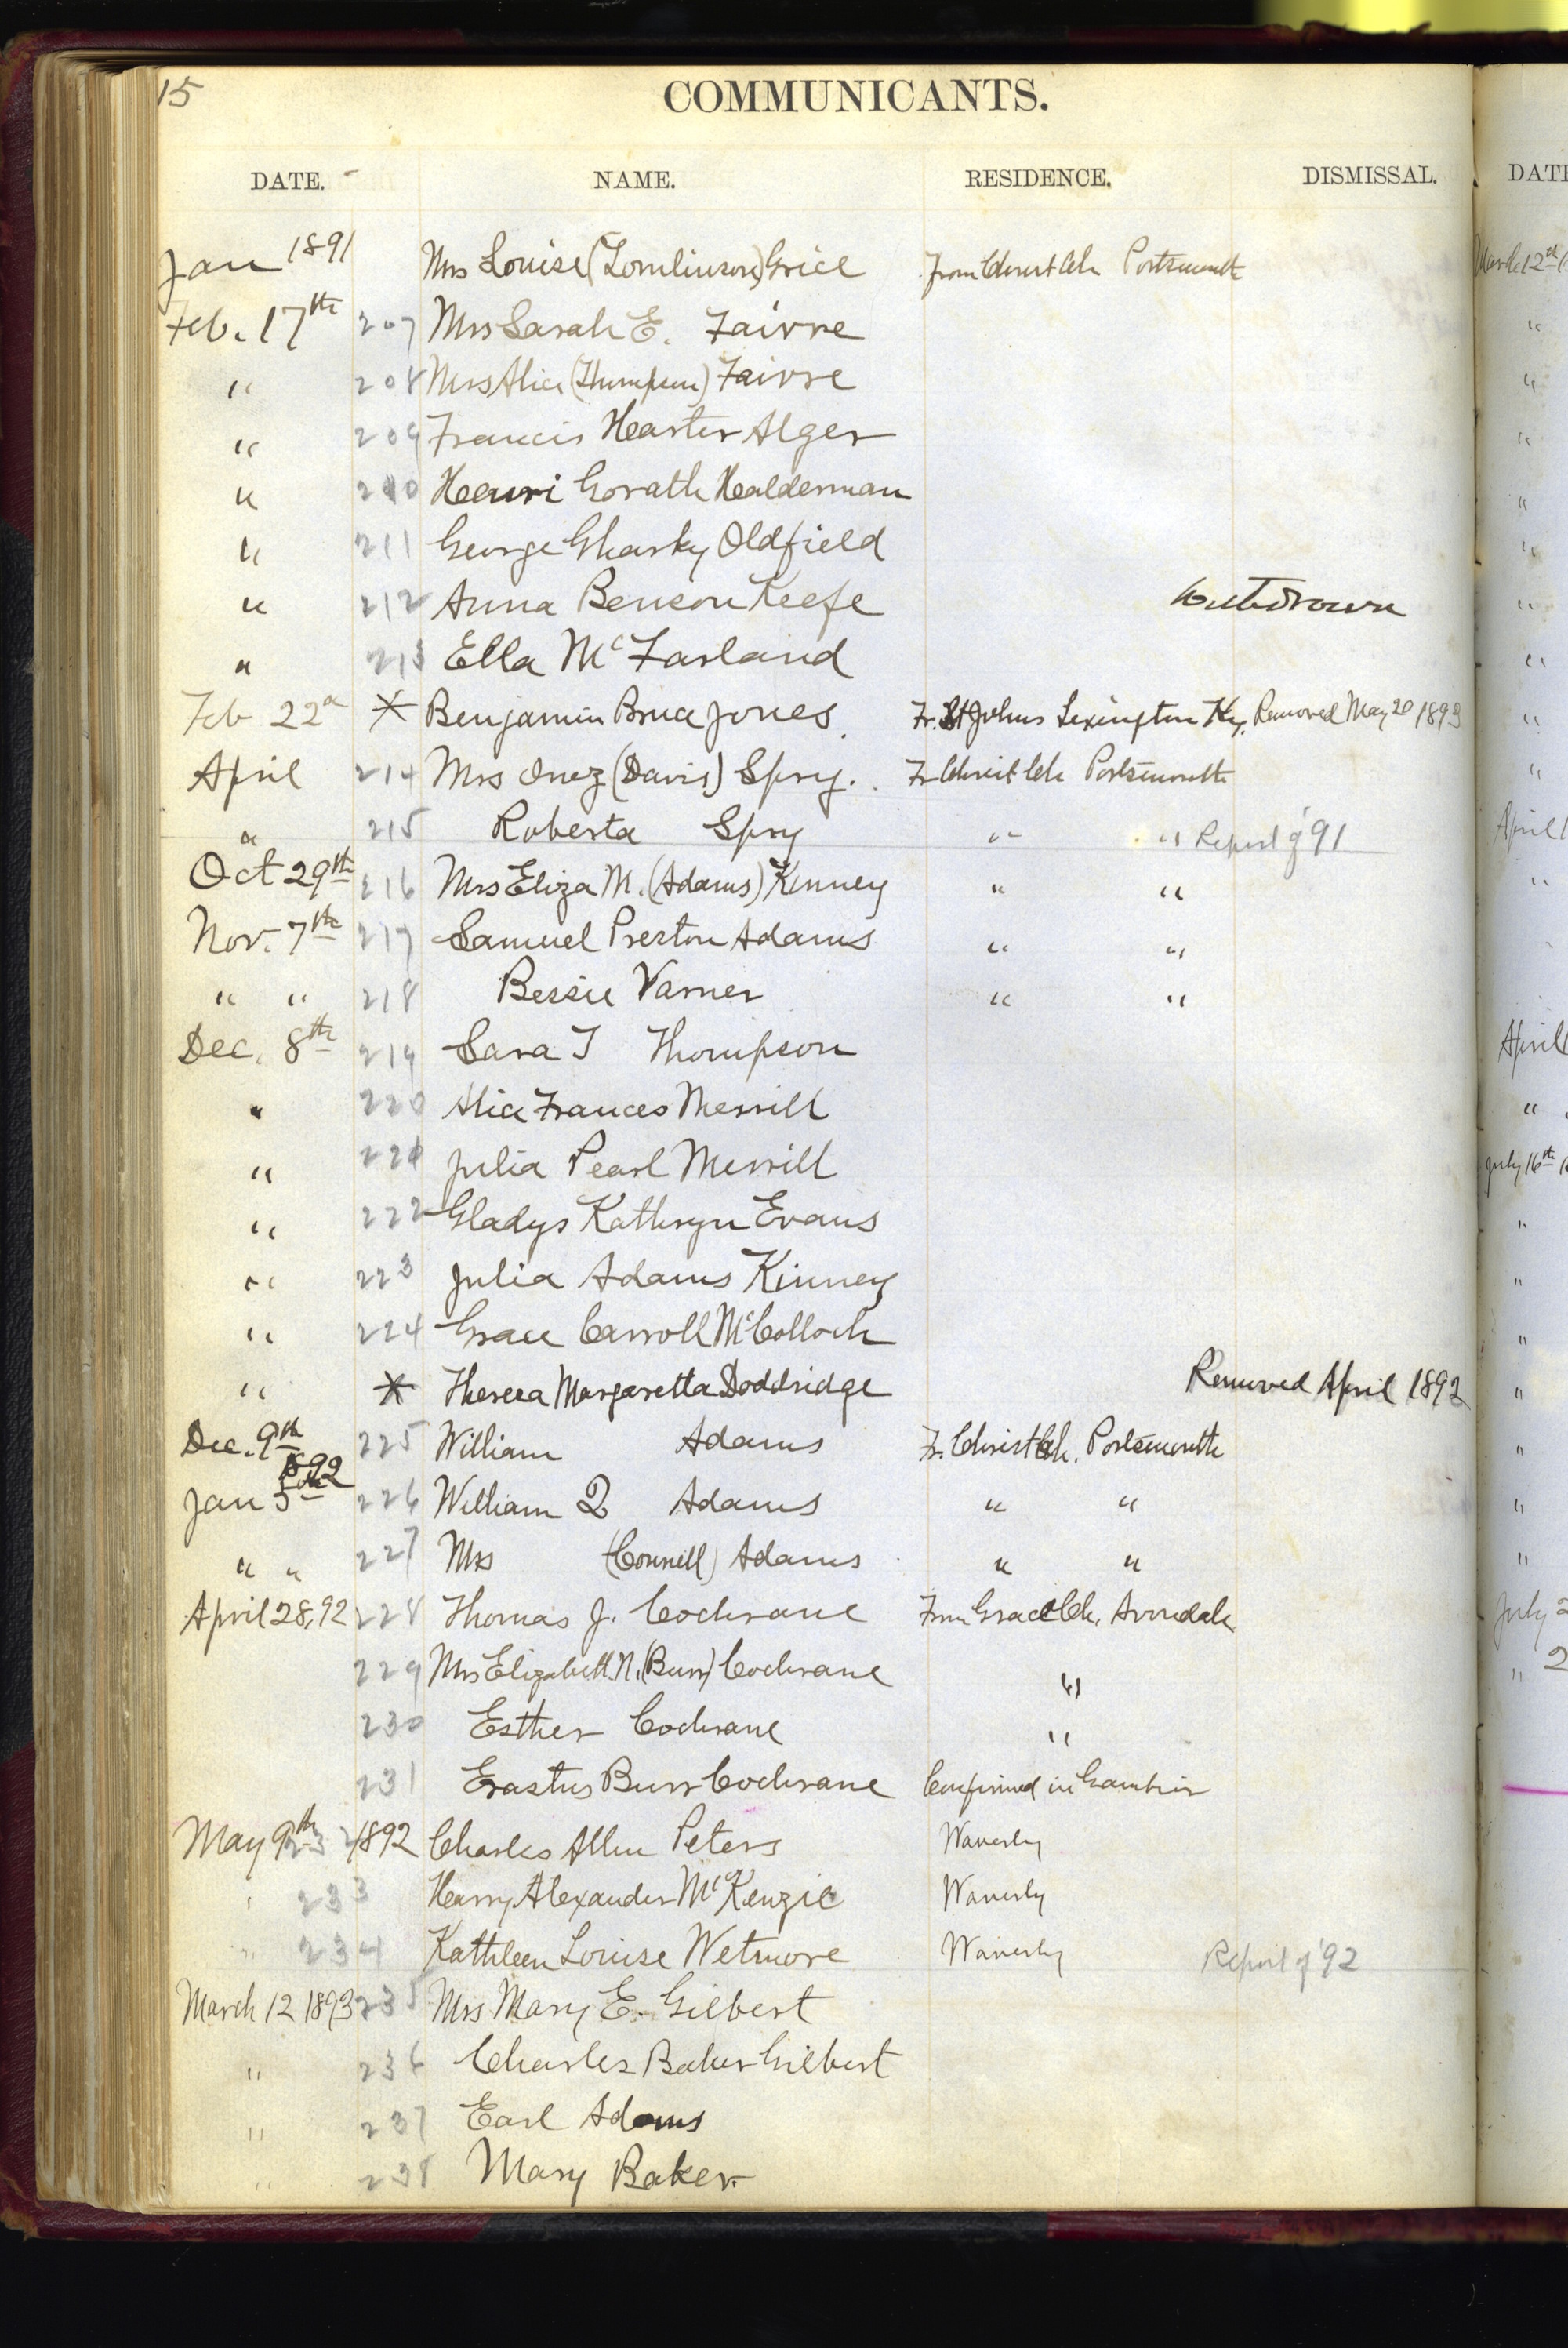 15
COMMUNICANTS.
DATE. NAME. RESIDENCE. DISMISSAL.
Jan 1891 Mrs Louise (Tomlinson) Grice From Christ Ch Portsmouth
Feb. 17th 207 Mrs Sarah E. Faivre
" 208 Mrs Alice (Thompson) Faivre
" 209 Francis Harter Alger
" 210 Henri Gorath Halderman
" 211 George Gharky Oldfield
" 212 Anna Benson Keefe Withdrawn
" 213 Ella McFarland
Feb 22d * Benjamin Bruce Jones. Fr. St Johns Lexington Ky. Removed May 20 1893
April 214 Mrs Inez (Davis) Spry. Fr Christ Ch Portsmouth
" 215 Roberta Spry " " Report of '91
Oct 29th 216 Mrs Eliza M. (Adams) Kinney " "
Nov. 7th 217 Samuel Preston Adams " "
" " 218 Bessie Varner " "
Dec. 8th 219 Sara T Thompson
" 220 Alice Frances Merrill
" 221 Julia Pearl Merrill
" 222 Gladys Kathryn Evans
" 223 Julia Adams Kinney
" 224 Grace Carroll McColloch
" * Theresa Margaretta Doddridge Removed April 1892
Dec. 9th 225 William Adams Fr. Christ Ch. Portsmouth
1892
Jan 5th 226 William Q Adams " "
" " 227 Mrs (Connell) Adams " "
April 28, 92 228 Thomas J. Cochrane From Grace Ch. Avondale
229 Mrs Elizabeth N. (Burr) Cochrane "
230 Esther Cochrane "
231 Erastus Burr Cochrane Confirmed in Gambier
May 9th 232 1892 Charles Allen Peters Waverly
" 233 Harry Alexander McKenzie Waverly
" 234 Kathleen Louise Wetmore Waverly Report of '92
March 12 1893 235 Mrs Mary E. Gilbert
" 236 Charles Baker Gilbert
" 237 Earl Adams
" 238 Mary Baker
DATE
March 12th
April
April
"
July 16th
July 2
" 2